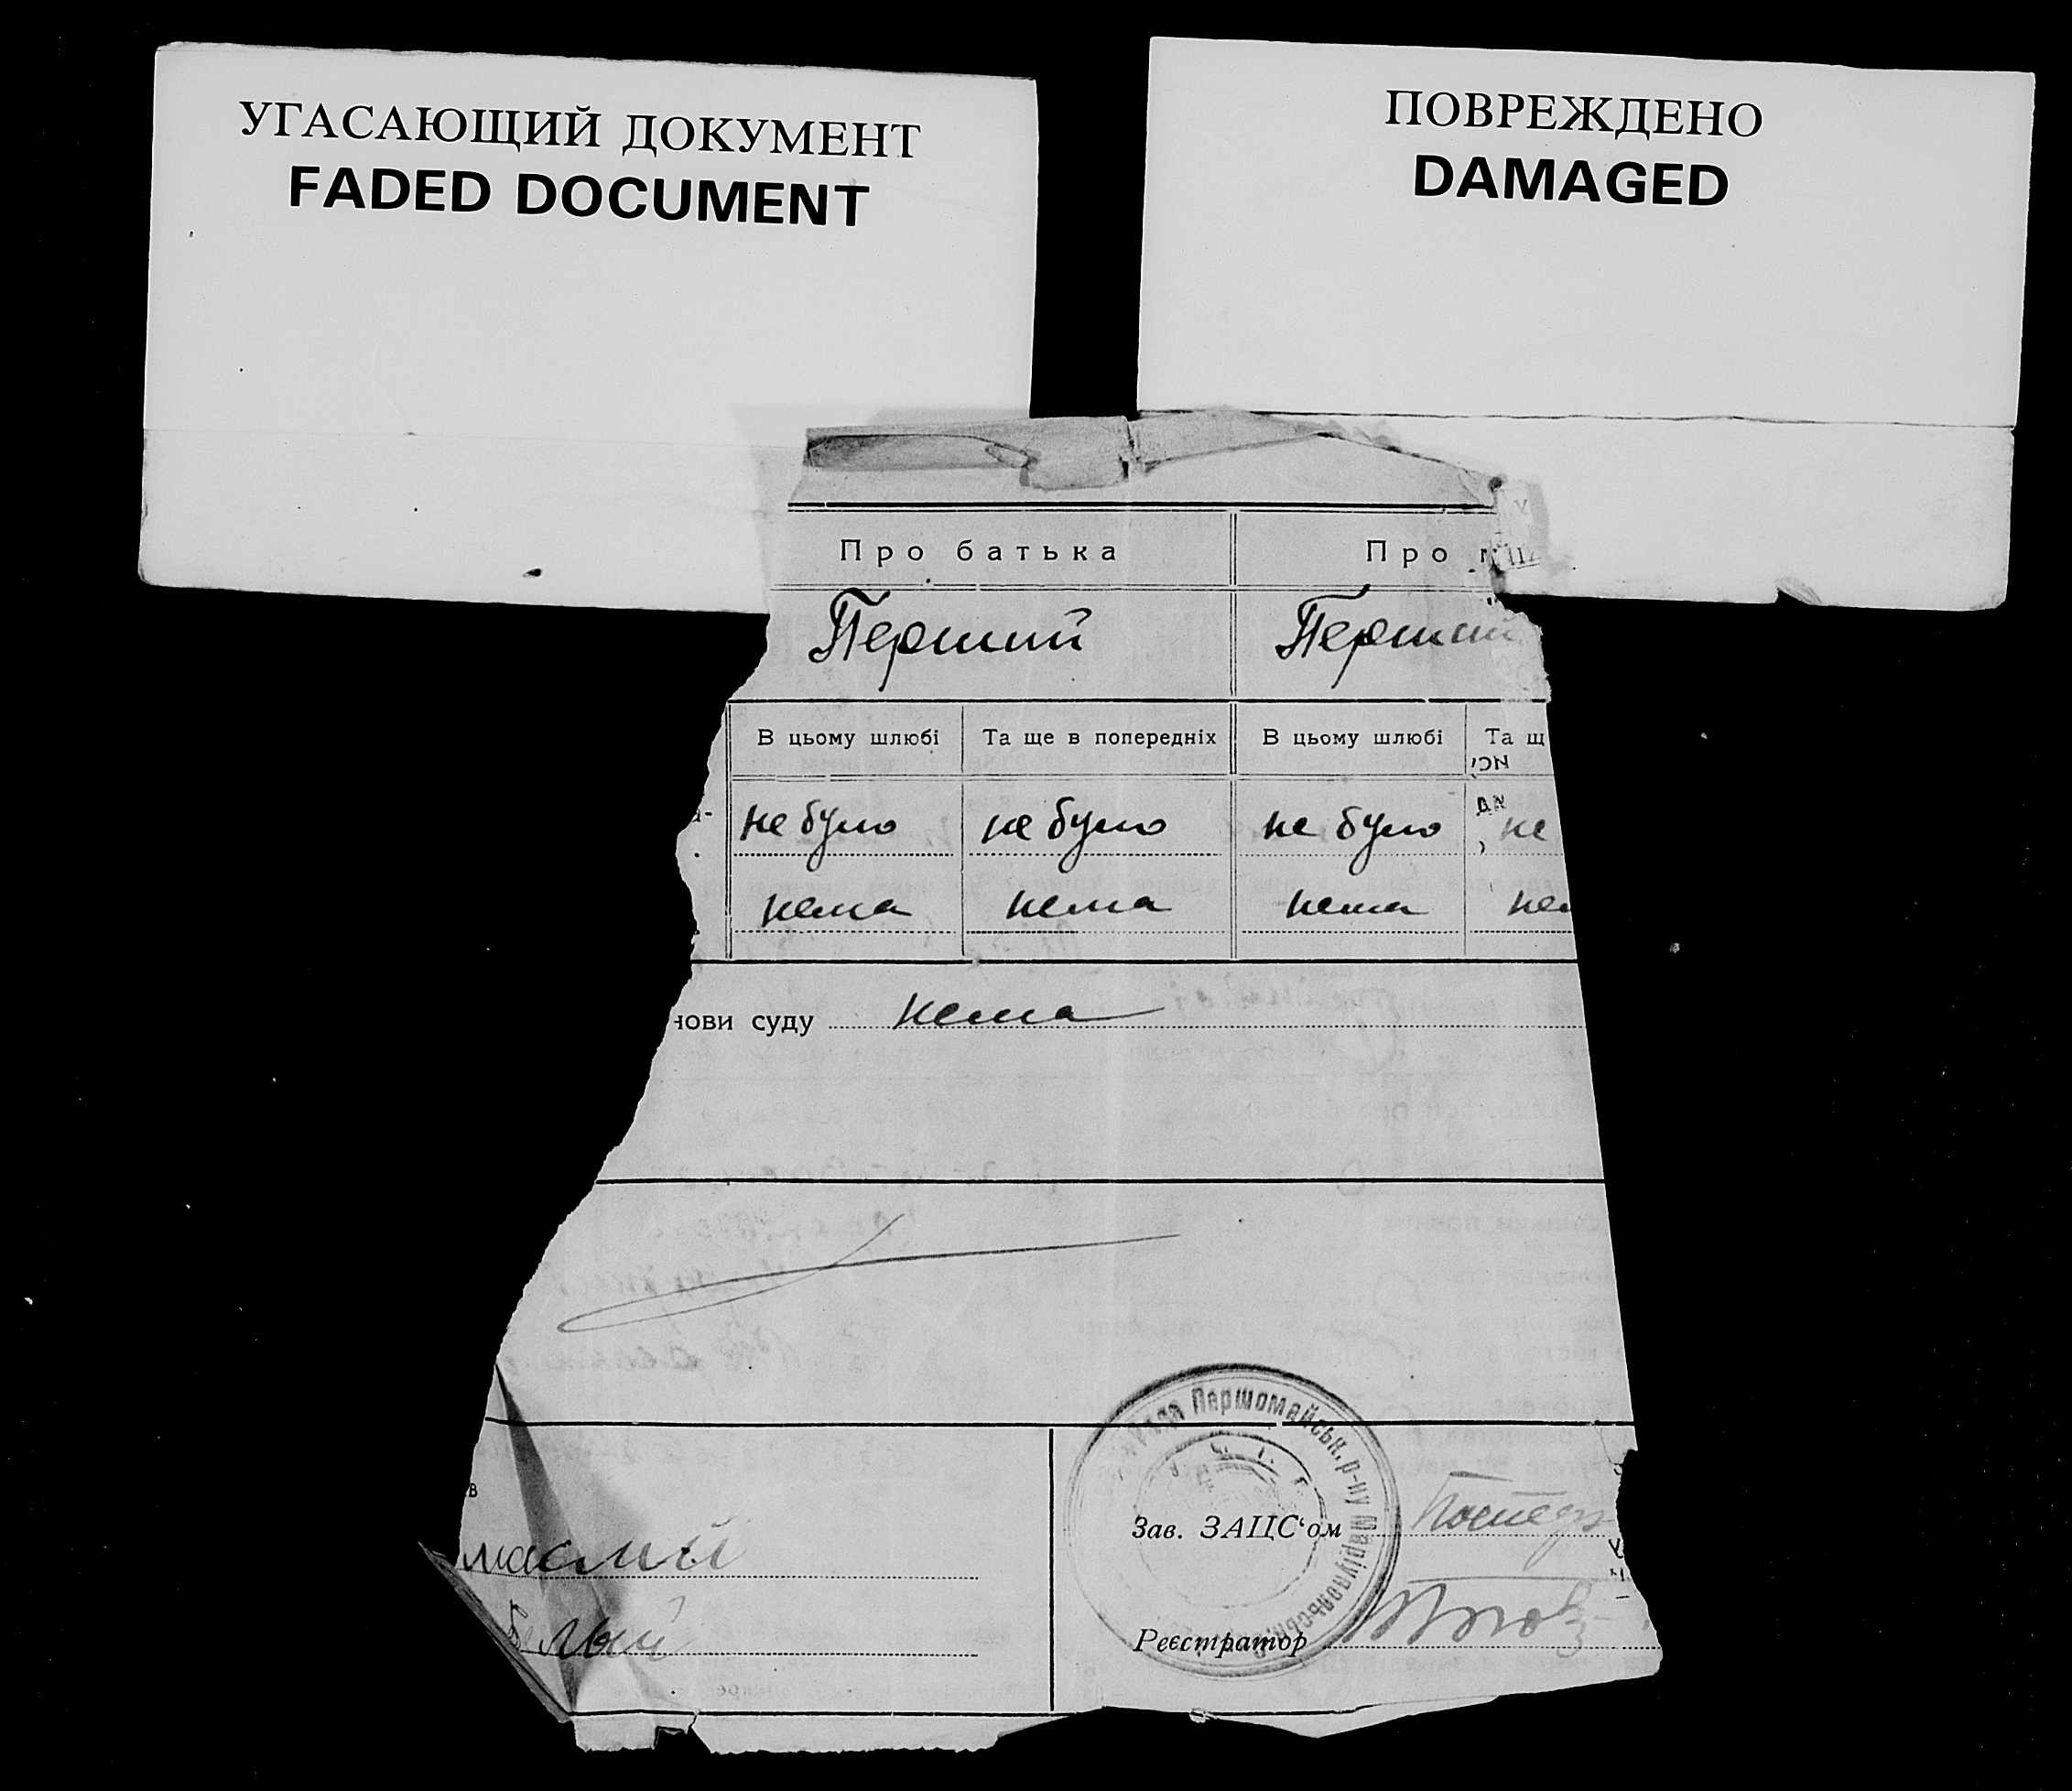 УГАСАЮЩИЙ ДОКУМЕНТ
FADED DOCUMENT
ПОВРЕЖДЕНО
DAMAGED
Про батька Про
Перший Перший
В цьому шлюбі Та ще в попередніх В цьому шлюбі Та щ
не було не було не було не
нема нема нема нем
нови суду нема
Рада Першомайськ. р-ну Маріупольськ.
в
Зав. ЗАЦС'ом
Реєстратор